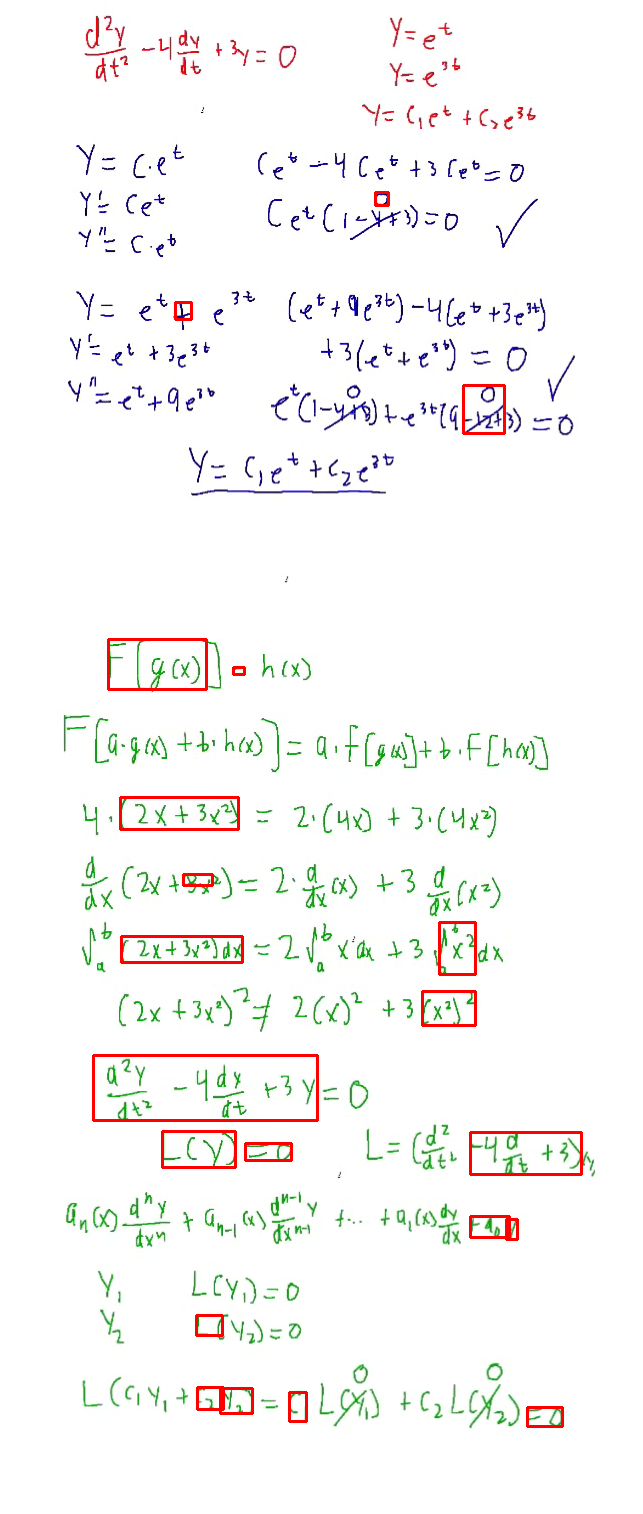 d²y/dt² - 4 dy/dt + 3y = 0
y = e^t
y = e^3t
y = C₁e^t + C₂e^3t
y = C·e^t
Ce^t - 4Ce^t + 3Ce^t = 0
y' = Ce^t
Ce^t(1-4+3) = 0 ✓
0
y'' = C·e^t
y = e^t + e^3t
(e^t + 9e^3t) - 4(e^t + 3e^3t)
y' = e^t + 3e^3t
+3(e^t + e^3t) = 0 ✓
y'' = e^t + 9e^3t
0 0
e^t(1-4+3) + e^3t(9-12+3) = 0
y = C₁e^t + C₂e^3t
F[g(x)] = h(x)
F[a·g(x) + b·h(x)] = a·F[g(x)] + b·F[h(x)]
4·(2x + 3x²) = 2·(4x) + 3·(4x²)
d/dx (2x + 3x²) = 2·d/dx(x) + 3 d/dx(x²)
∫_a^b (2x + 3x²)dx = 2∫_a^b x dx + 3∫_a^b x² dx
(2x + 3x²)² ≠ 2(x)² + 3(x²)²
d²y/dt² - 4 dy/dt + 3y = 0
L(y) = 0
L = (d²/dt² - 4 d/dt + 3)y
aₙ(x) dⁿy/dxⁿ + aₙ₋₁(x) dⁿ⁻¹y/dxⁿ⁻¹ + ... + a₁(x) dy/dx + a₀y
y₁ L(y₁) = 0
y₂ L(y₂) = 0
0 0
L(c₁y₁ + c₂y₂) = c₁L(y₁) + c₂L(y₂) = 0